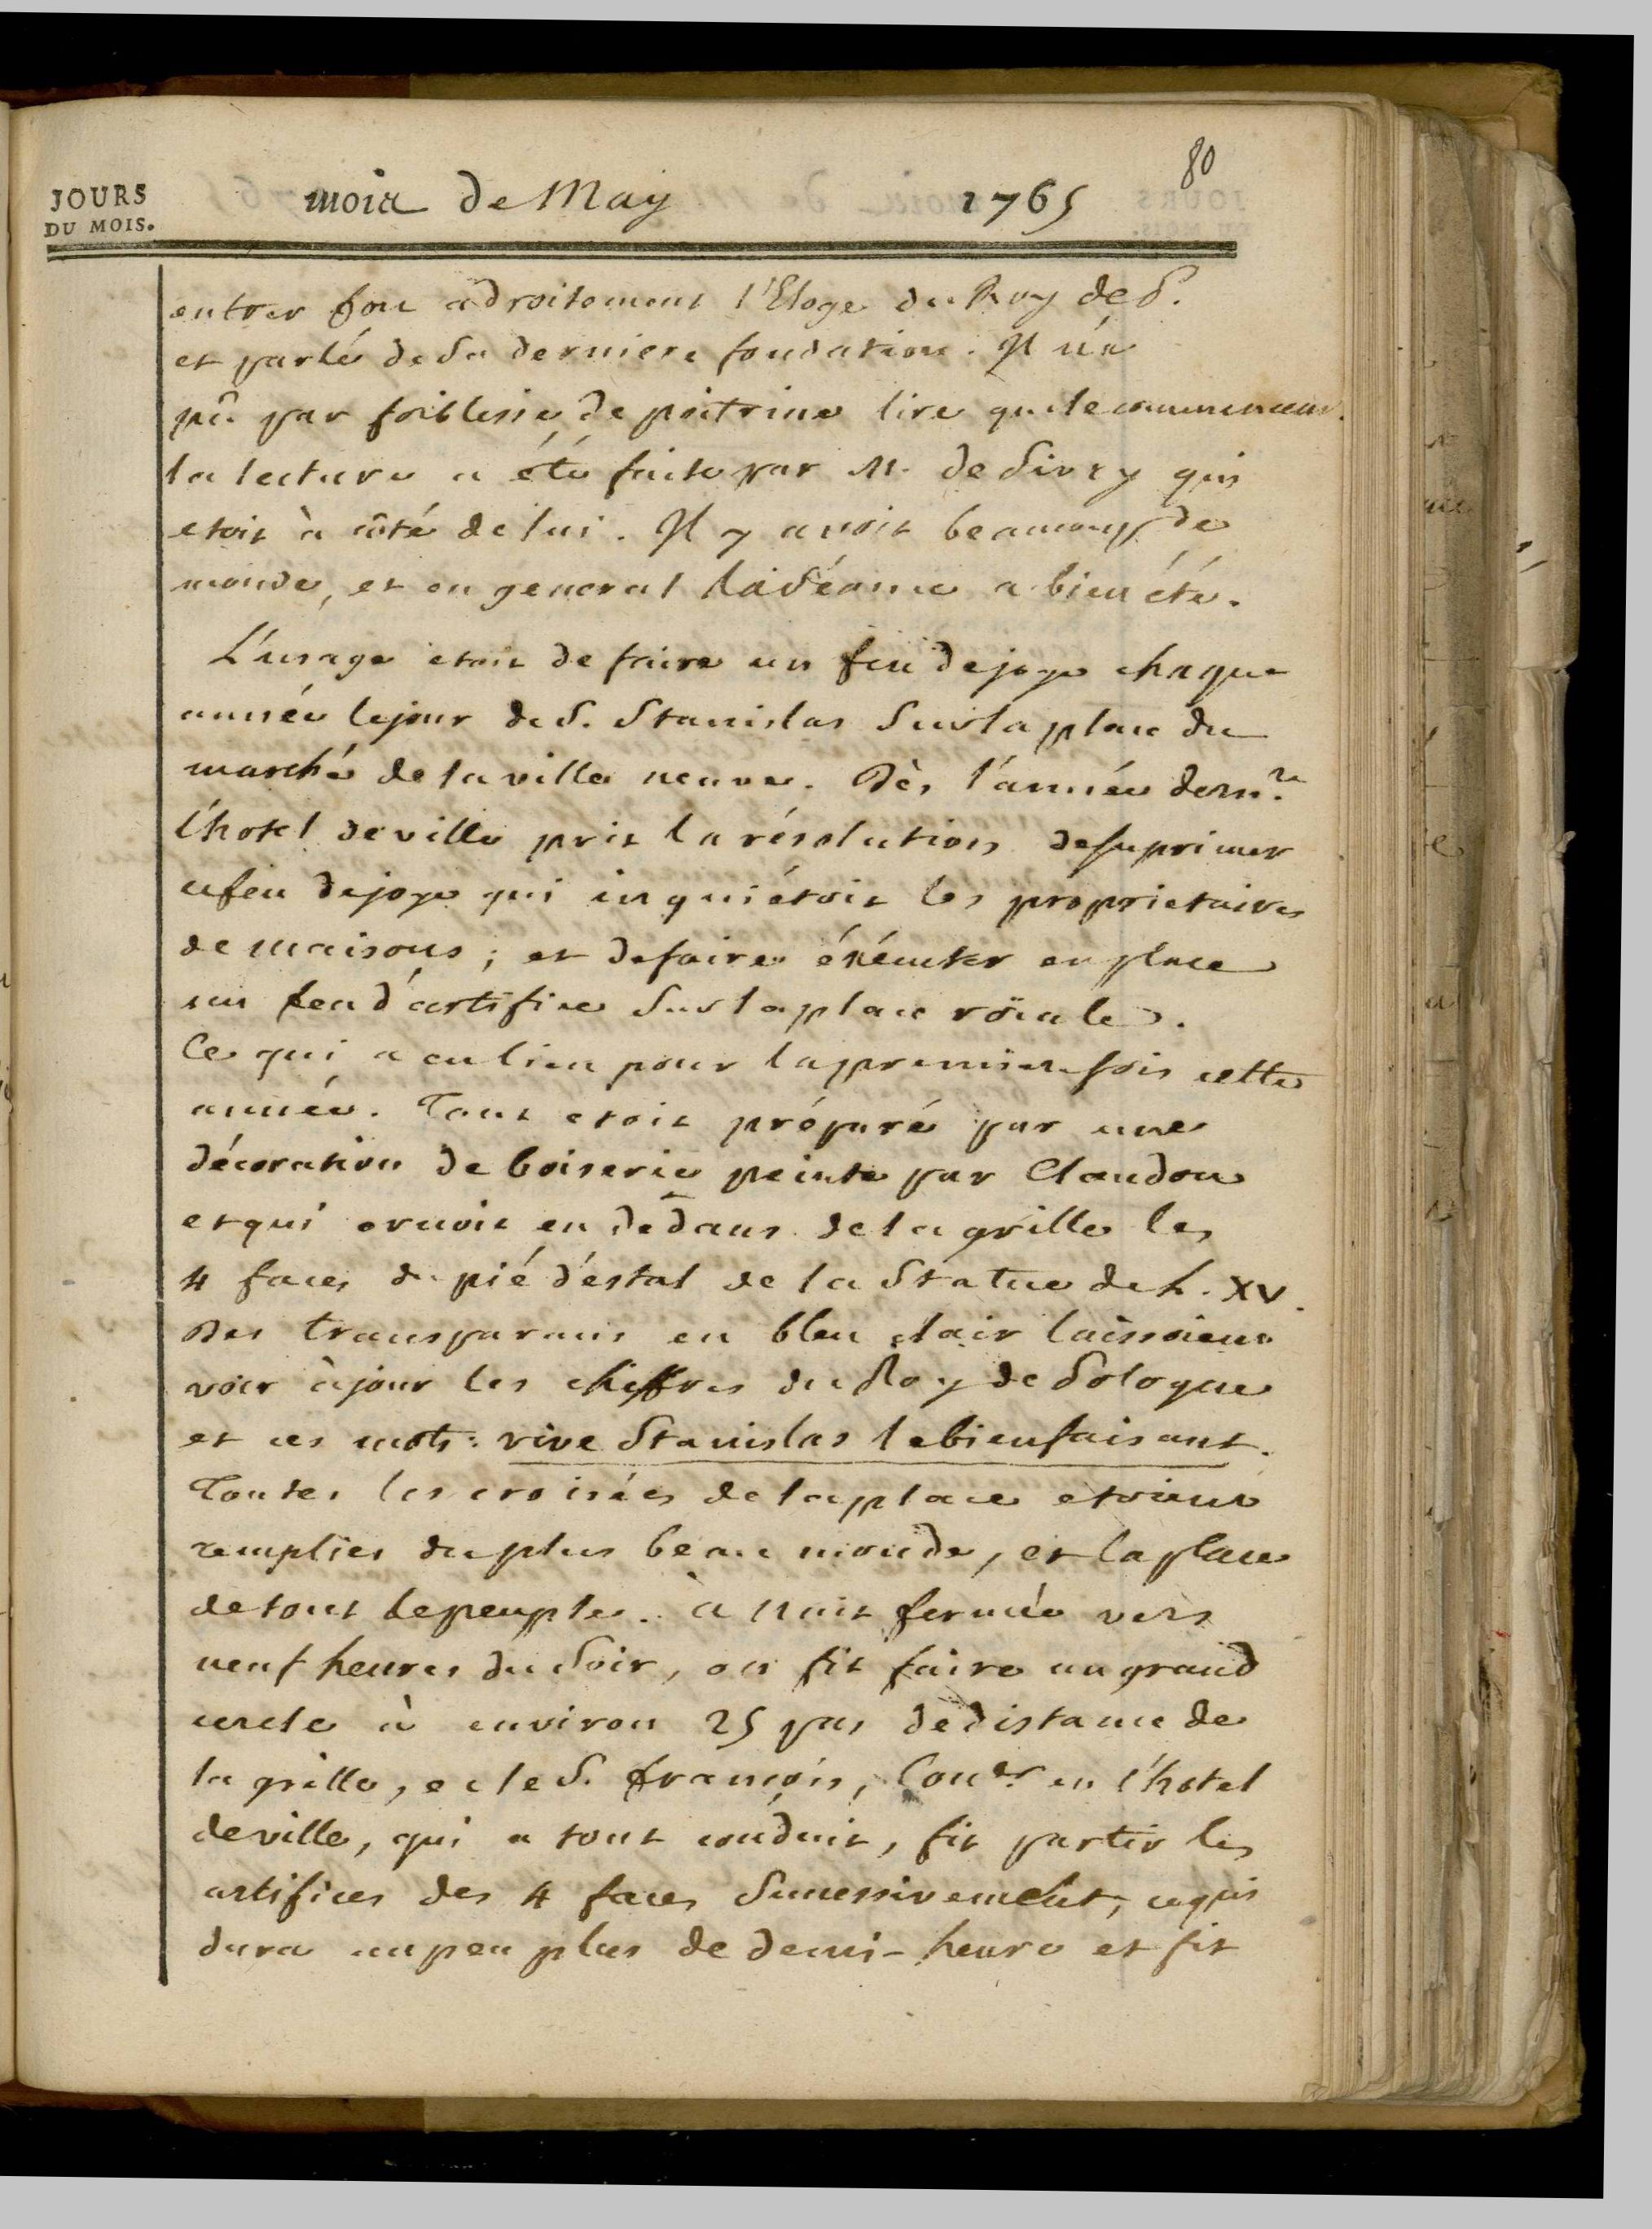 80
JOURS
DU MOIS.
mois de May 1765
entrer fort adroitement l'Eloge du Roy de P.
et parlé de sa derniere fondation. Il n'a
pû par foiblesse de poitrine lire que le commencemt.
la lecture a été faite par M. de Sivry qui
etoit à côté de lui. Il y avoit beaucoup de
monde, et en general la séance a bien été.
L'usage etoit de faire un feu de joye chaque
année le jour de S. Stanislas sur la place du
marché de la ville neuve. Dès l'année dernre.
l'hotel de ville prit la résolution de suprimer
ce feu de joye qui inquiétoit les proprietaires
de maisons; et de faire éxécuter en place
un feu d'artifice sur la place roïale.
Ce qui a eu lieu pour la premiere fois cette
année. Tout etoit préparé par une
décoration de boiserie peinte par Claudon
et qui ornoit en dedans de la grille les
4 faces du pié d'estal de la Statue de L. XV.
Des transparens en bleu clair laissoient
voir à jour les chiffres du Roy de Pologne
et ces mots: vive Stanislas le bienfaisant.
Toutes les croisées de la place etoient
remplies du plus beau monde, et la place
de tout le peuple. à nuit fermée vers
neuf heures du Soir, on fit faire un grand
cercle à environ 25 pas de distance de
la grille, et le S. françois, Coner en l'hotel
de ville, qui a tout conduit, fit partir les
artifices des 4 faces Successivement, ce qui
dura un peu plus de demi-heure et fit